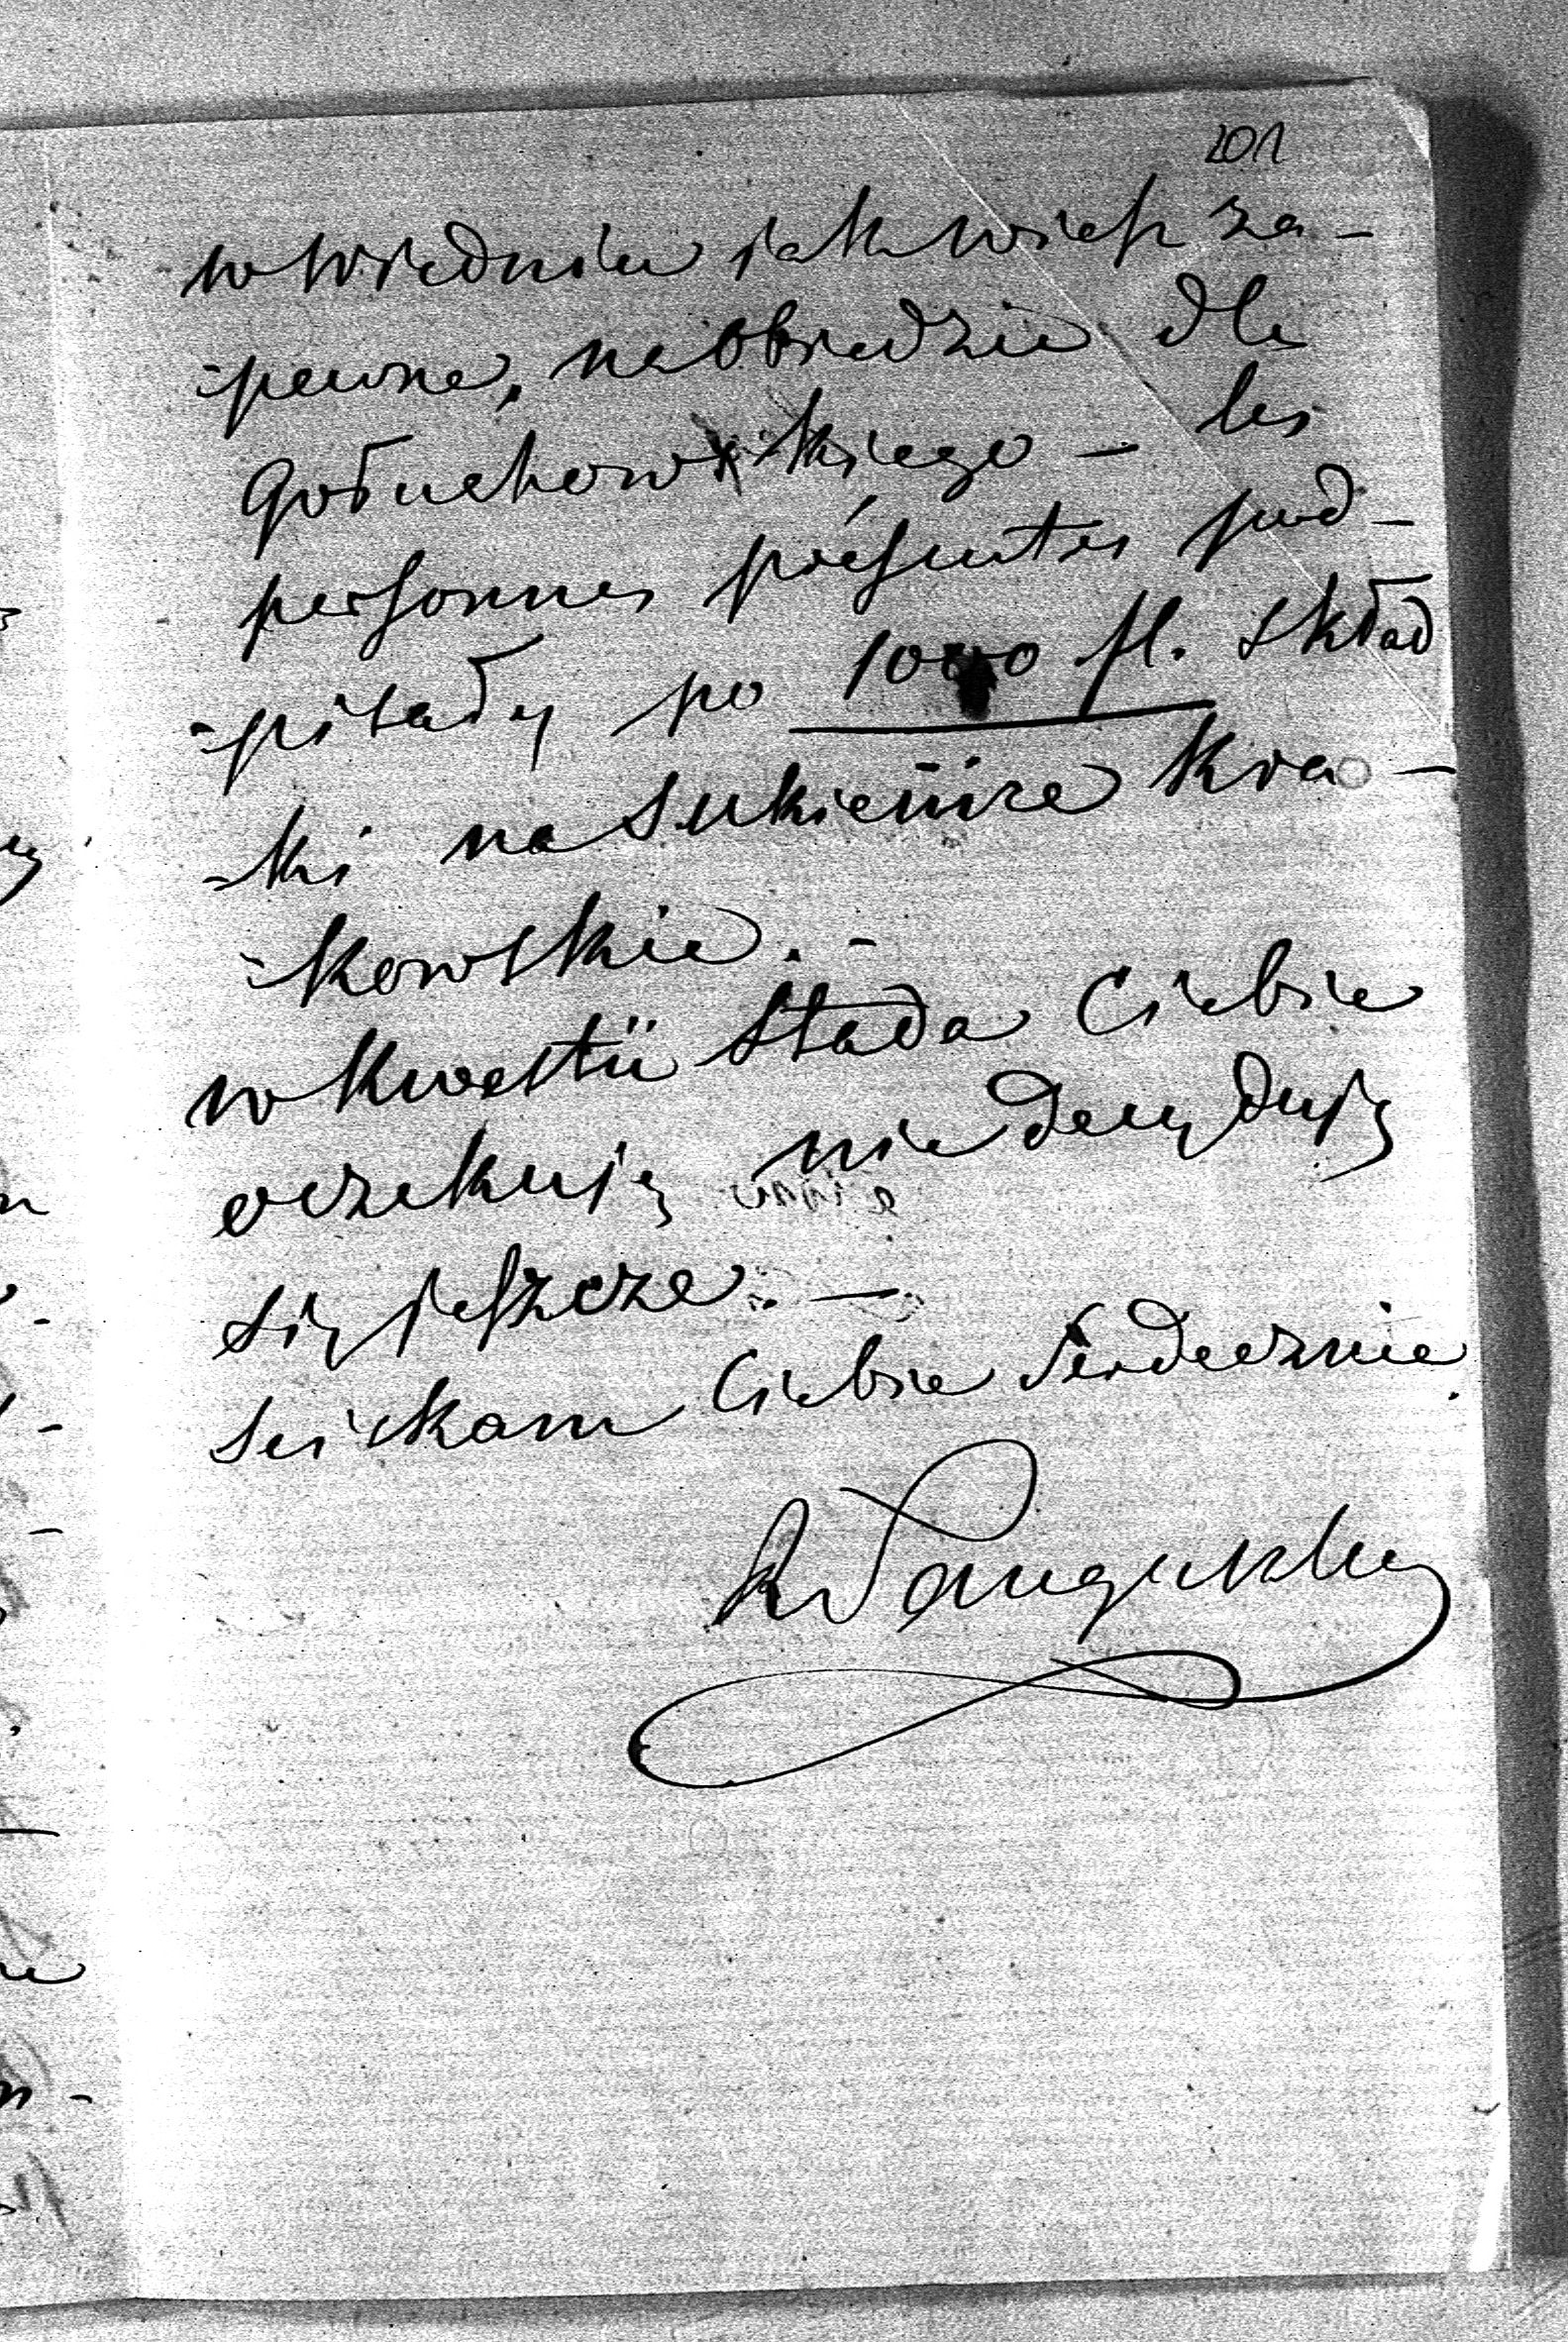 201
w Wiedniu jak wiesz za-
-pewne, na obiedzie dla
Gołuchowskiego – les
personnes présentes pod-
-pisały po 1000 fl. skład
-ki na Sukiennice kra-
-kowskie. -
w kwestii Stada Ciebie
oczekuję nie decyduję
się jeszcze. —
Sciskam Ciebie Serdecznie